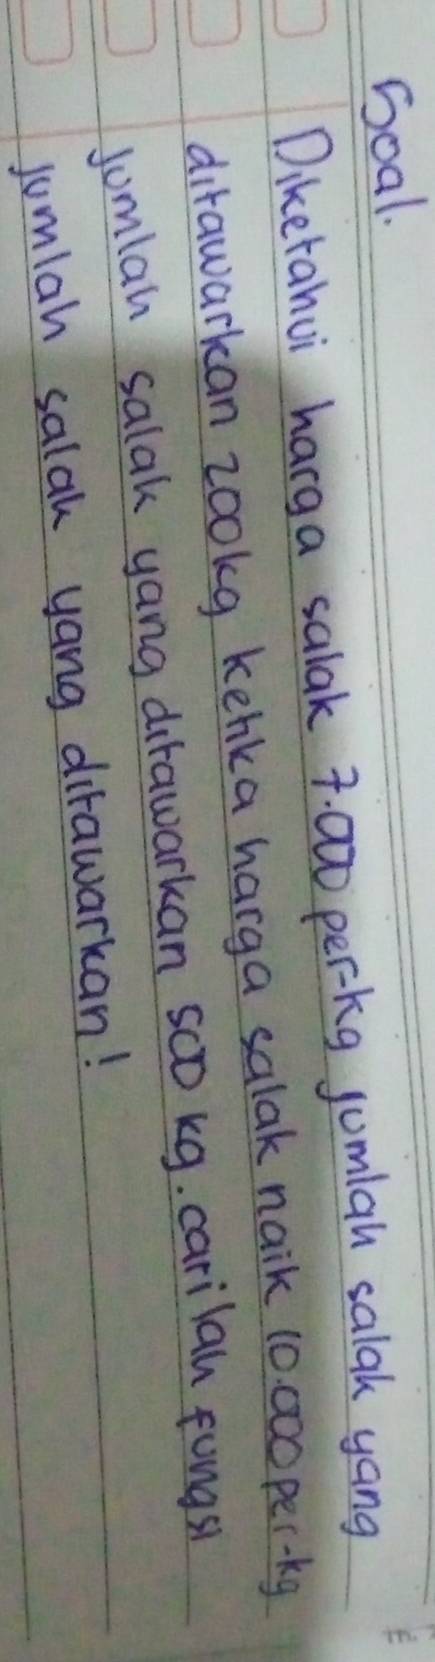 Soal.
Diketahui harga salak 7.000 per-kg jumlah salak yang
ditawarkan 200kg ketika harga salak naik 10.000 per-kg
jumlah salak yang ditawarkan 500 kg. carilah fungsi
jumlah salak yang ditawarkan!